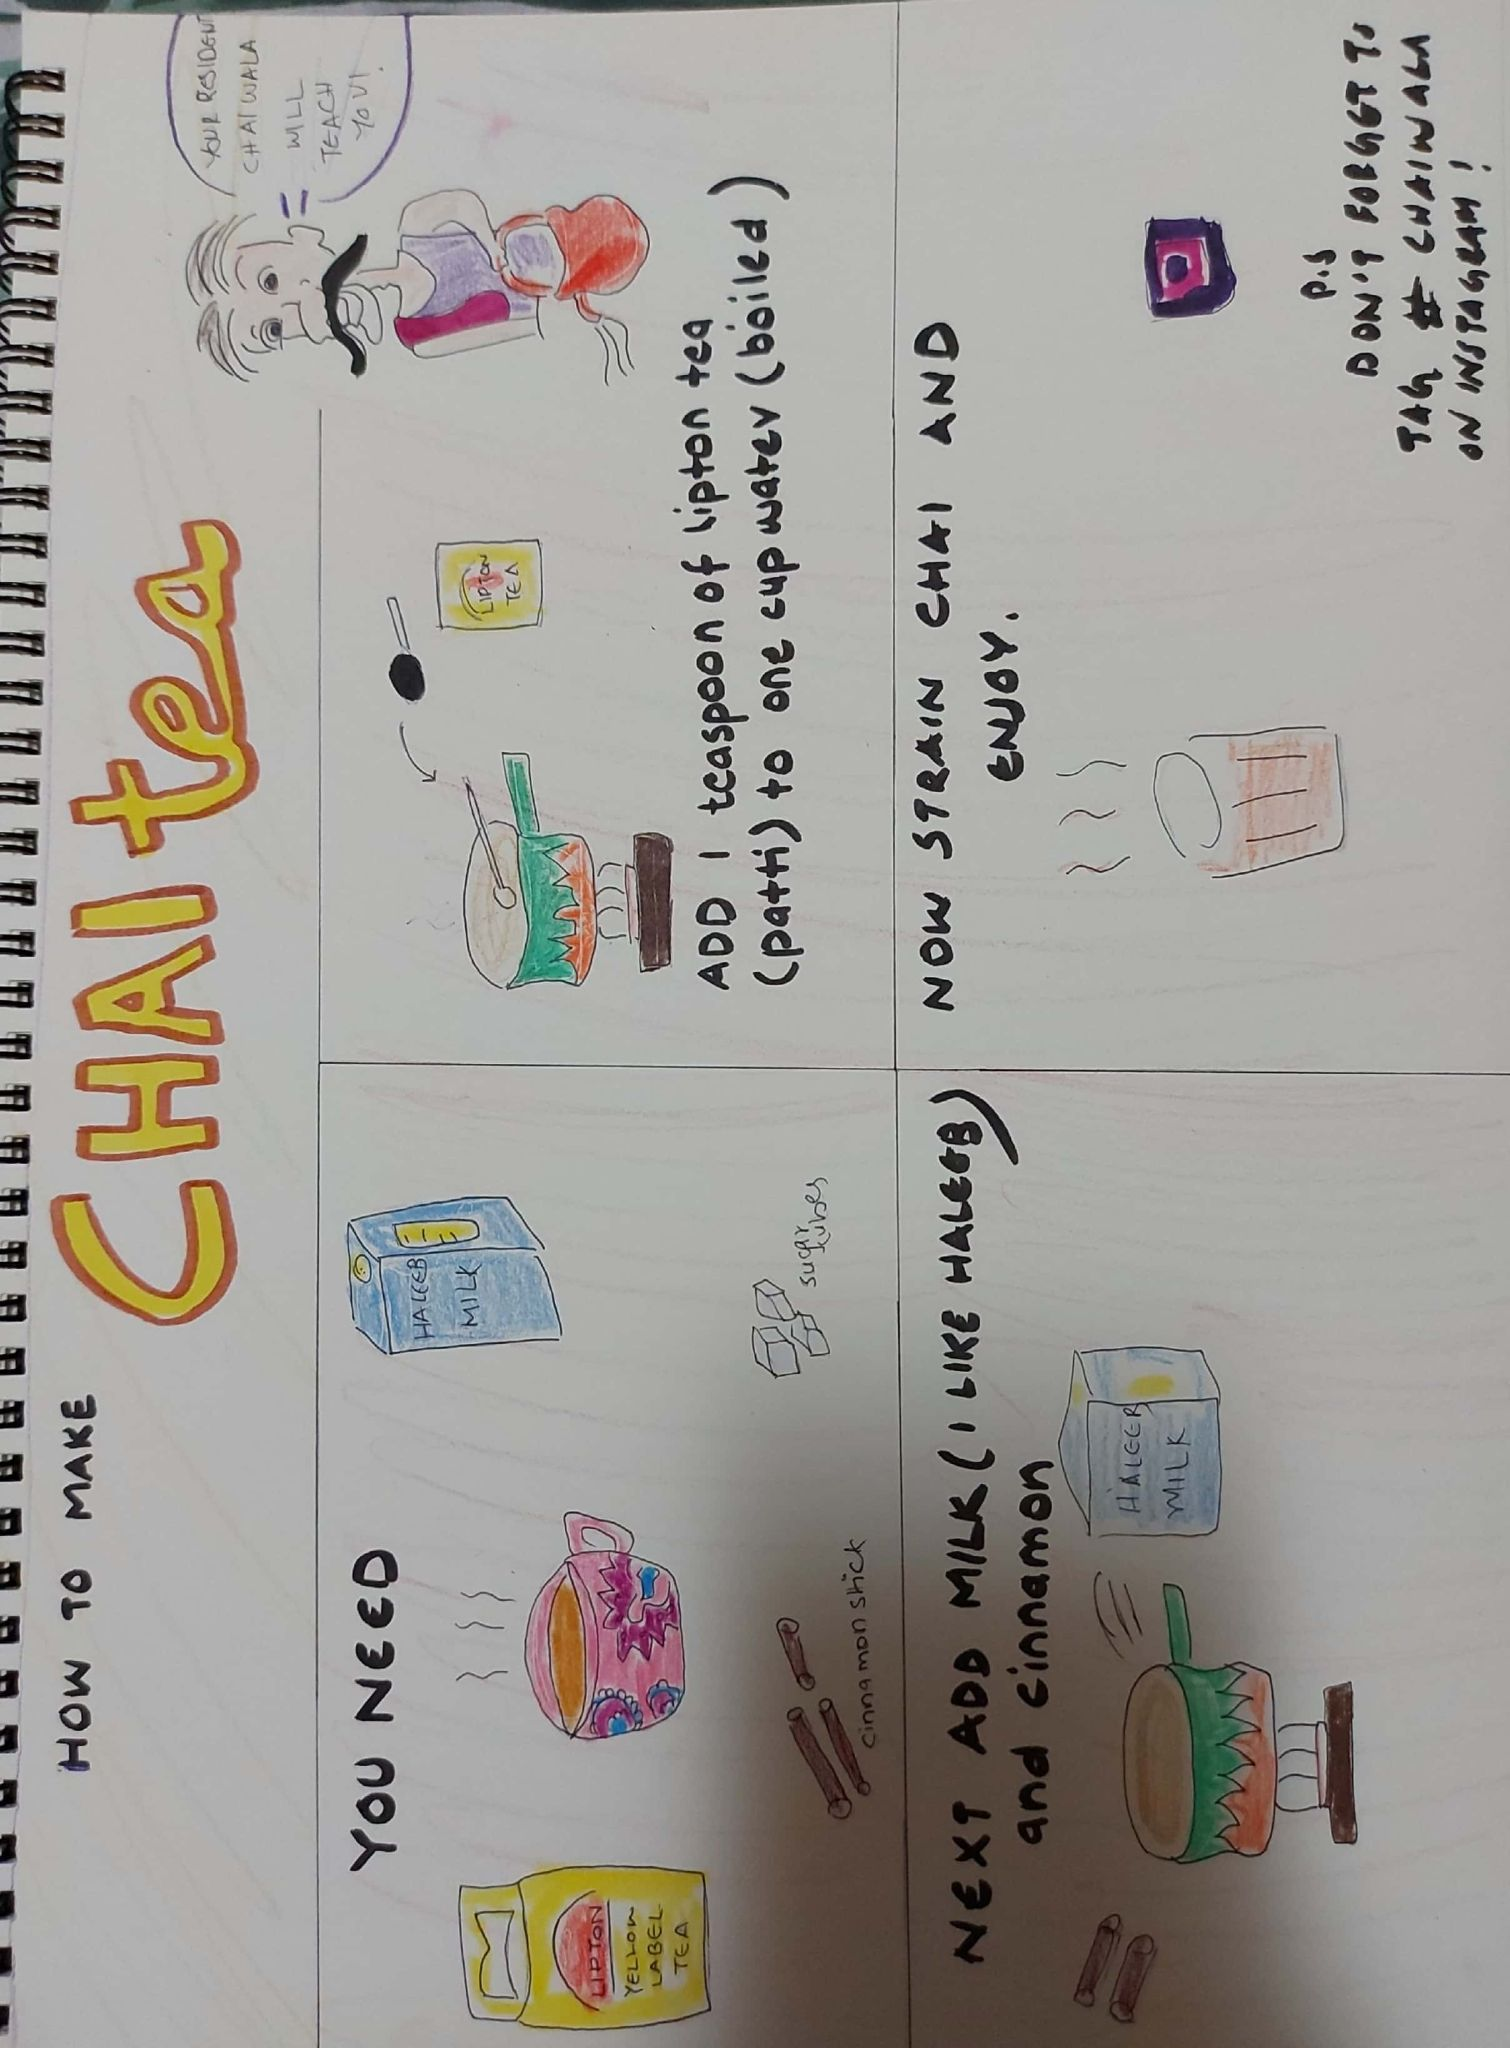 HOW TO MAKE
CHAI tea
YOUR RESIDENT
CHAI WALA
WILL
TEACH
YOU!
YOU NEED
LIPTON
YELLOW
LABEL
TEA
HALEEB
MILK
cinnamon stick
sugar
cubes
LIPTON
TEA
ADD 1 teaspoon of lipton tea
(patti) to one cup water (boiled)
NEXT ADD MILK (I LIKE HALEEB)
and cinnamon
HALEEB
MILK
NOW STRAIN CHAI AND
ENJOY.
P.S
DON'T FORGET TO
TAG # CHAIWALA
ON INSTAGRAM!